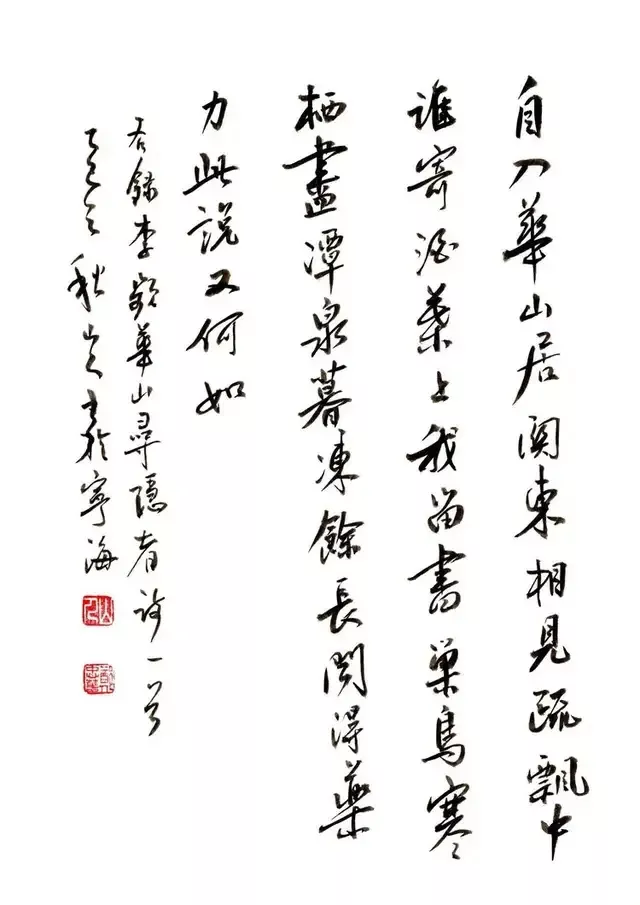 自入華山居関東相見疏瓢中
誰寄酒葉上我留書巢鳥寒
栖盡潭泉暮凍餘長聞得藥
力此說又何如
右錄李頻華山尋隱者詩一首
乙巳之秋山人書於寧海